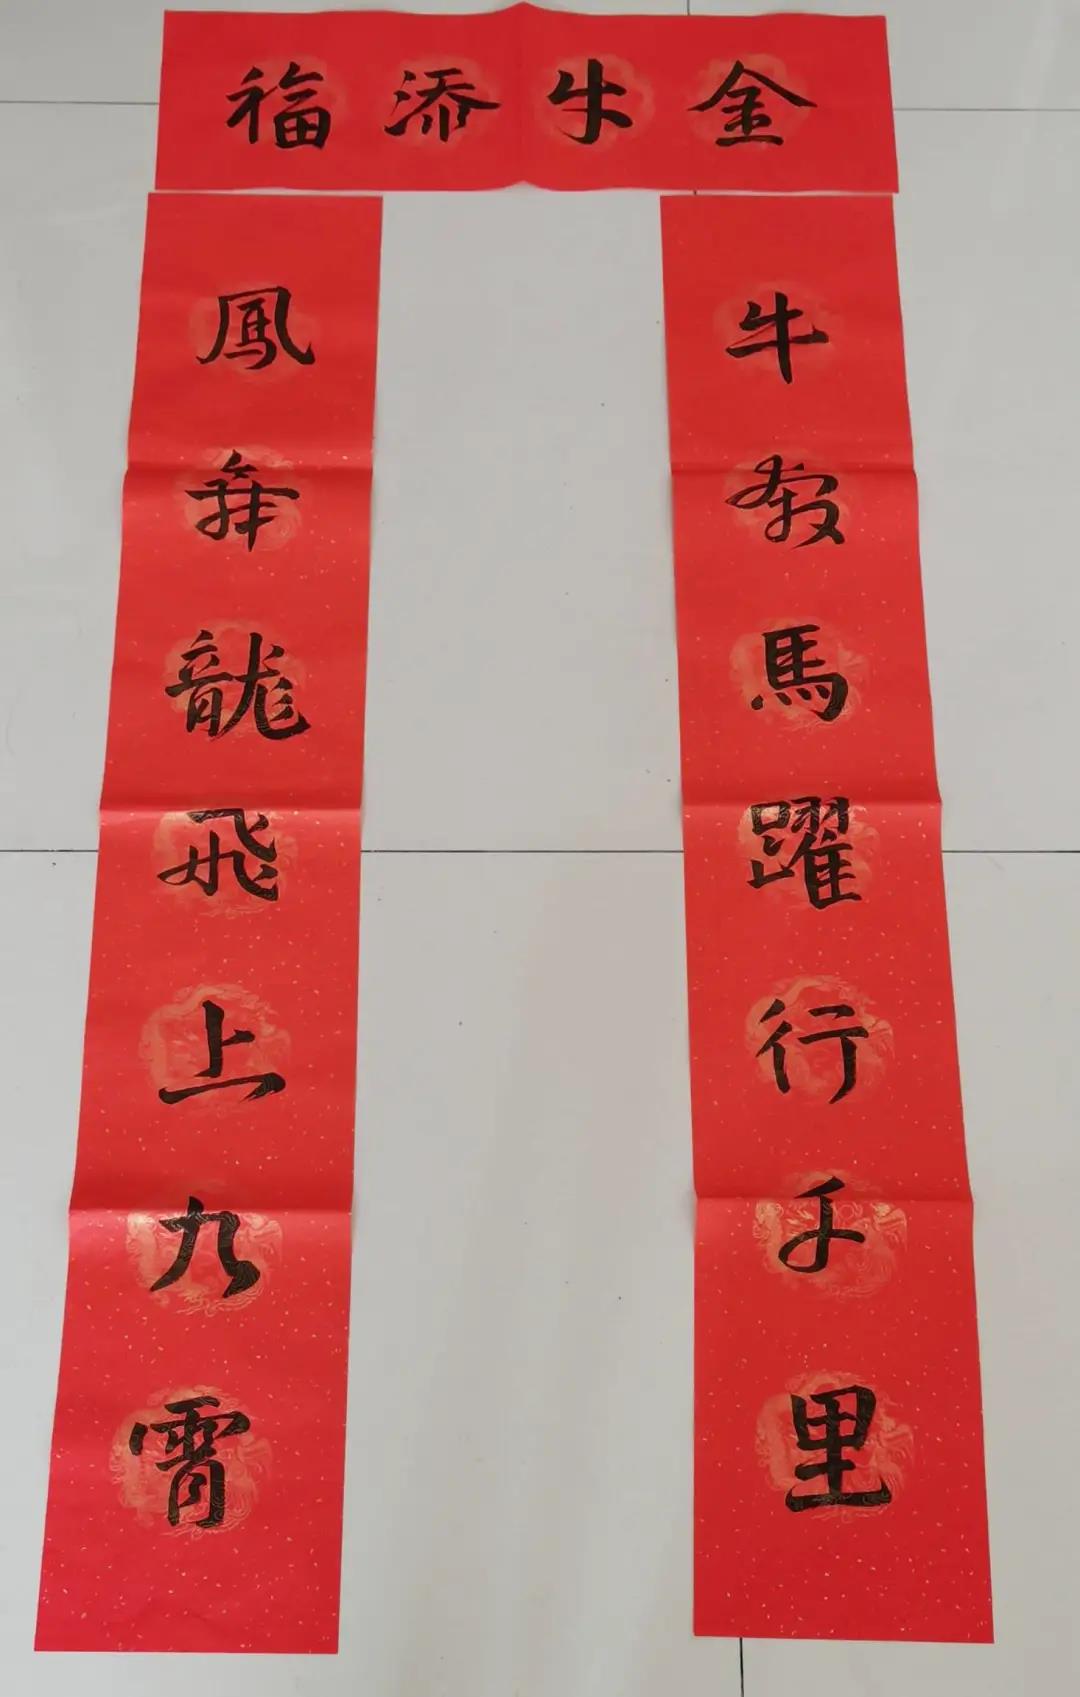 金牛添福
牛馬躍行千里
鳳舞龍飛上九霄